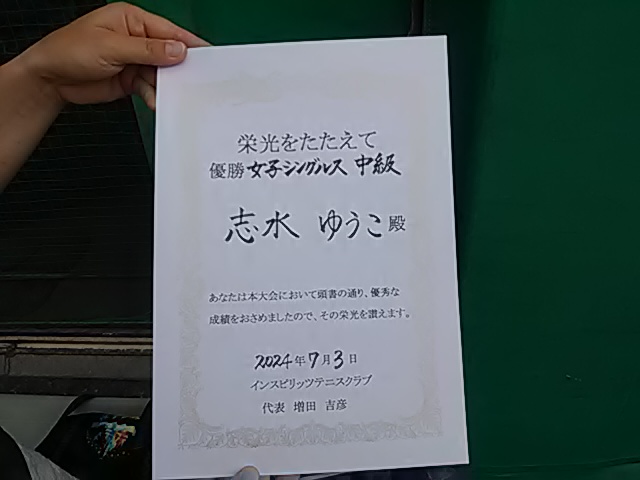 栄光をたたえて
優勝 女子シングルス 中級
志水 ゆうこ 殿
あなたは本大会において頭書の通り、優秀な
成績をおさめましたので、その栄光を讃えます。
2024年7月3日
インスピリッツテニスクラブ
代表 増田 吉彦